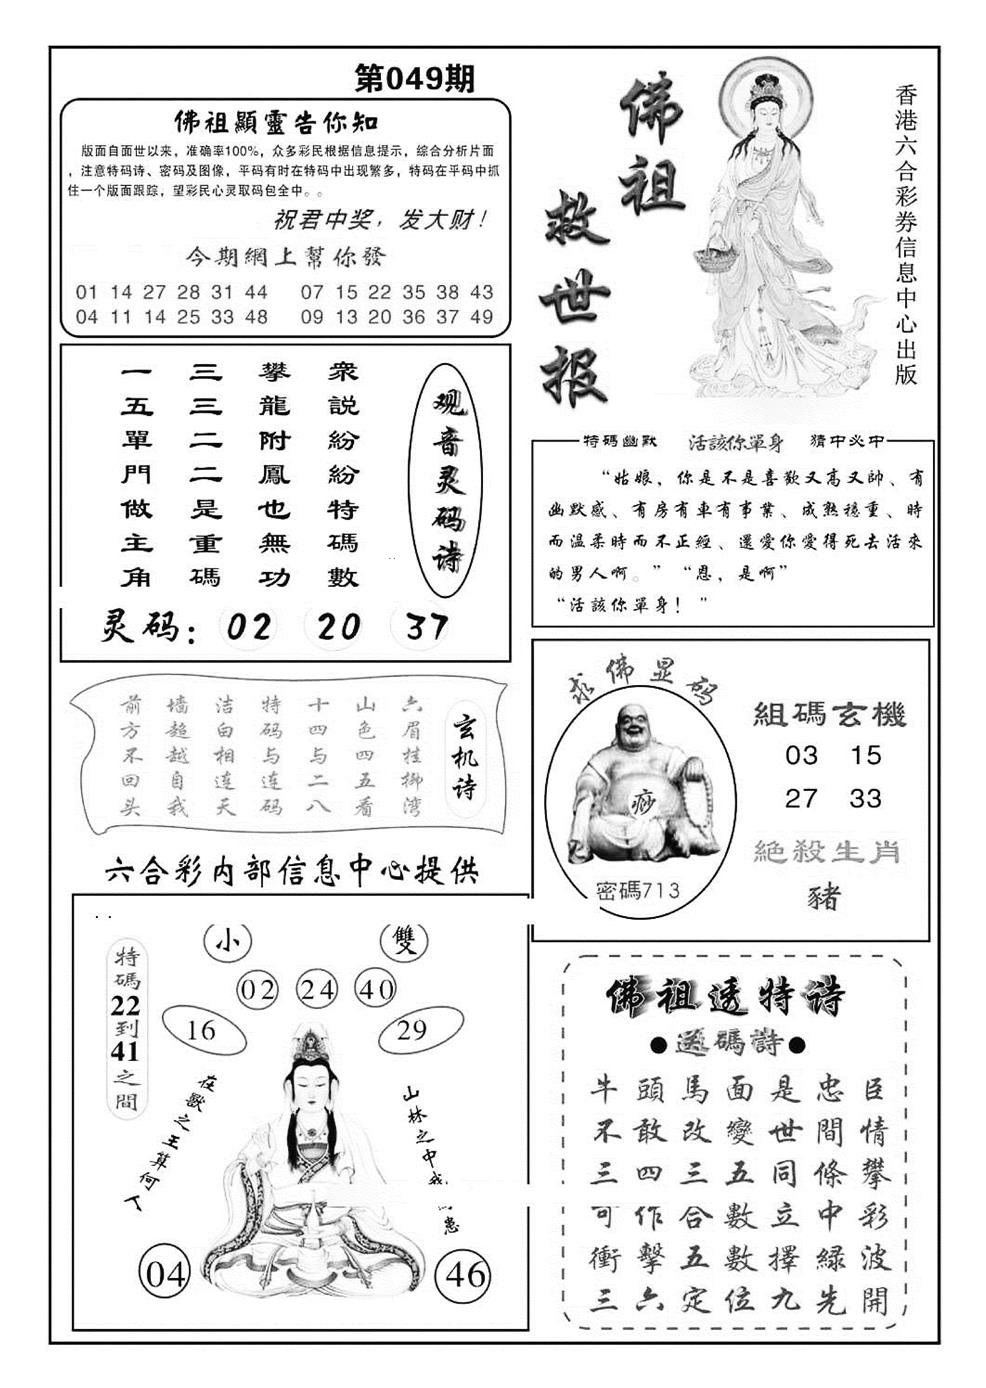 第049期
佛祖顯靈告你知
版面自面世以来，准确率100%，众多彩民根据信息提示，综合分析片面
，注意特码诗、密码及图像，平码有时在特码中出现繁多，特码在平码中抓
住一个版面跟踪，望彩民心灵取码包全中。。
祝君中奖，发大财！
今期網上幫你發
01 14 27 28 31 44 07 15 22 35 38 43
04 11 14 25 33 48 09 13 20 36 37 49
佛祖
救世报
香港六合彩券信息中心出版
观音灵码诗
衆説紛紛特碼數
攀龍附鳳也無功
三三二二是重碼
一五單門做主角
灵码：02 20 37
特碼幽默 活該你單身 猜中必中
“姑娘，你是不是喜歡又高又帥、有
幽默感、有房有車有事業、成熟穩重、時
而溫柔時而不正經、還愛你愛得死去活來
的男人啊。” “恩，是啊”
“活該你單身！”
玄机诗
六眉挂柳湾
山色四五看
十四与二八
特码与连码
洁白相连天
墙超越自我
前方不回头
六合彩内部信息中心提供
求佛显码
痧
密碼713
組碼玄機
03 15
27 33
絕殺生肖
豬
小 雙
02 24 40
16 29
特碼22到41之間
在獸之王算何人
山林之中
患
04 46
佛祖透特诗
●透碼詩●
牛頭馬面是忠臣
不敢改變世間情
三四三五同條攀
可作合數立中彩
衝擊五數擇綠波
三六定位九先開